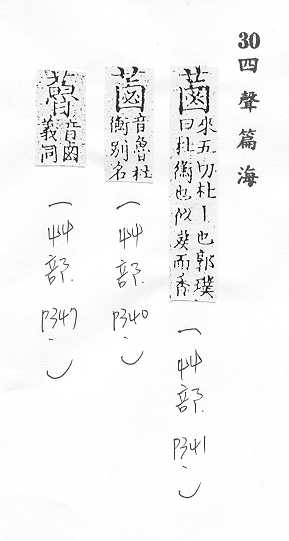 30四聲篇海
蓾 來五切杜丨也郭璞
曰杜衡也似葵而香
(艸部 P341.)
蓾 音魯杜
衡別名
(艸部 P340.)
音鹵
義同
(艸部 P347.)